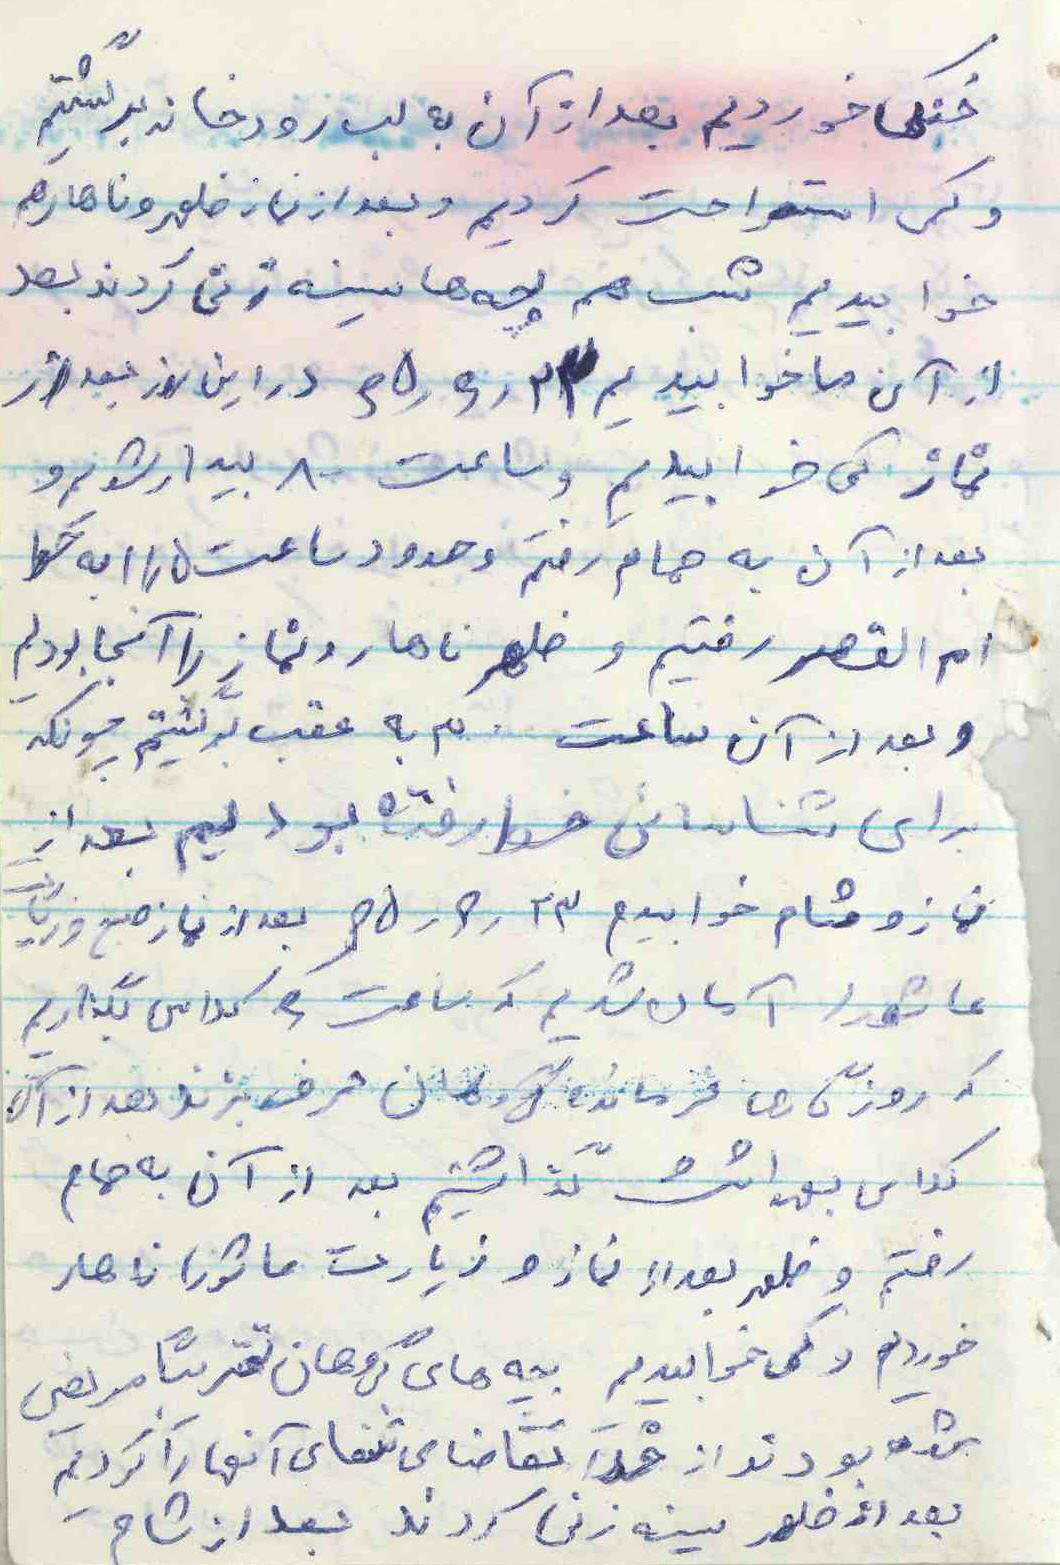 خنکی خوردیم بعد از آن به لب رودخانه برگشتیم
و کمی استراحت کردیم و بعد از نماز ظهر و ناهار هم
خوابیدیم شب هم بچه ها سینه زنی کردند بعد
از آن ما خوابیدیم ۲۲ر۶ر۶۵ در این روز بعد از
نماز کمی خوابیدیم و ساعت ۸۰۰ بیدار شویم و
بعد از آن به حمام رفتم و حدود ساعت ۱۱ر۵ به خط
ام القصر رفتیم و ظهر ناهار و نماز را آنجا بودیم
و بعد از آن ساعت ۳۰۰ به عقب برگشتیم چونکه
برای شناسائی خط رفته بودیم بعد از
نماز و شام خوابیدیم ۲۳ر۶ر۶۵ بعد از نماز صبح و زیارت
عاشورا آماده شدیم که ساعت ۶ کلاس بگذاریم
که روزی ها فرمانده گروهان حرف بزند بعد از آن
کلاس بهداشت گذاشتیم بعد از آن به حمام
رفتم و ظهر بعد از نماز و زیارت عاشورا ناهار
خوردیم و کمی خوابیدیم بچه های گروهان تقریباً مریض
شده بودند از خدا تقاضای شفای آنها را کردیم
بعد از ظهر سینه زنی کردند بعد از شام